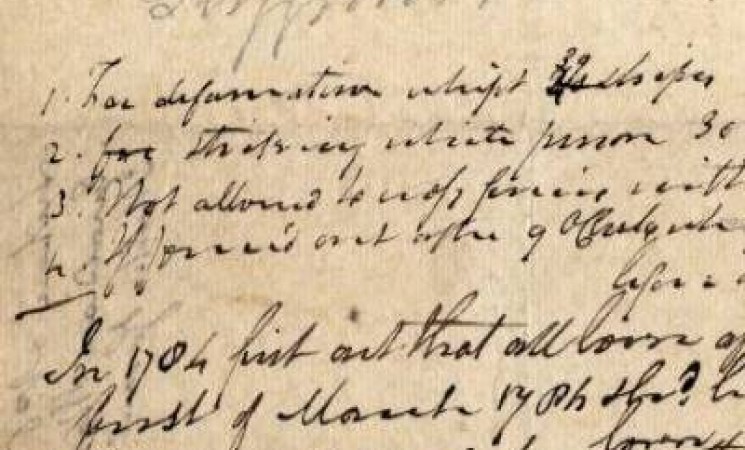 1. For defamation whipt 30 stripes
2. for striking white person 30
3. Not allowed to cross ferries with
4. If found out after 9 OClock
In 1784 first act that all born af
first of March 1784 shd. b
born